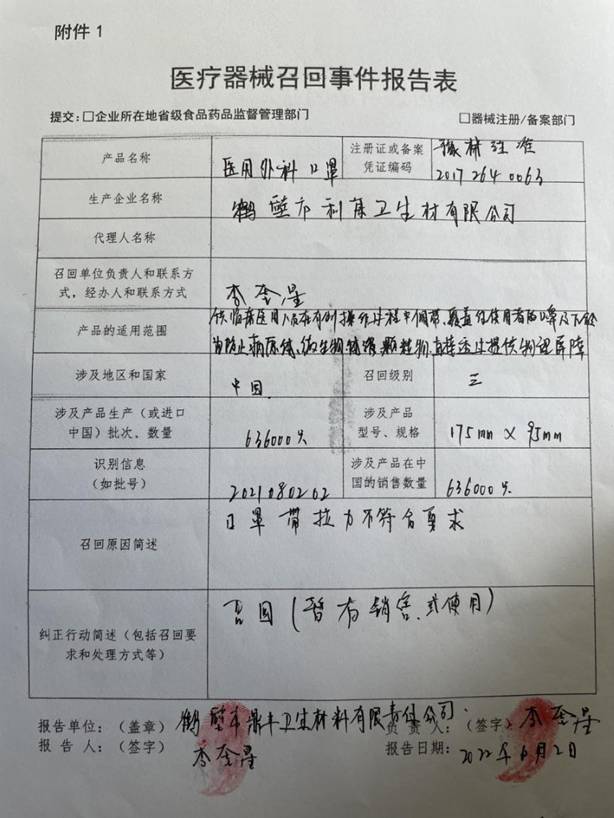 附件1
医疗器械召回事件报告表
提交：□企业所在地省级食品药品监督管理部门 □器械注册/备案部门
产品名称 医用外科口罩 注册证或备案凭证编码 豫械注准 2017 264 0063
生产企业名称 鹤壁市利康卫生材有限公司
代理人名称
召回单位负责人和联系方式，经办人和联系方式 李奎星
产品的适用范围 供临床医用人员在有创操作过程中佩带，覆盖住使用者的口鼻及下颌
为防止病原体、微生物 颗粒物 直接透过提供物理屏障
涉及地区和国家 中国 召回级别 三
涉及产品生产（或进口中国）批次、数量 636000只 涉及产品型号、规格 175mm×95mm
识别信息（如批号） 2021080202 涉及产品在中国的销售数量 636000只
召回原因简述 口罩带拉力不符合要求
纠正行动简述（包括召回要求和处理方式等） 召回（暂 销售、或使用）
报告单位：（盖章） 鹤壁市鼎丰卫生材料有限责任公司 负责人：（签字） 李奎星
报告人：（签字） 李奎星 报告日期：2022年6月2日